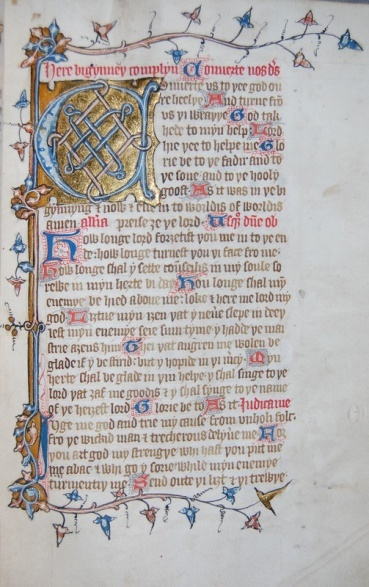 Here bigynneþ complyn Conuerte nos ds
Conuerte us to yee god ou
re heelye And turne fro
us yi wraþþe God tak
hede to myn help: Lord
hie yee to helpe me Glo
rie be to ye fadir and to
ye sone and to ye hooly
goost As it was in ye bi
gynnyng & now & euer in to worldis of worldis
amen allia preise ye ye lord Usqȝ dne ob
How longe lord forȝetist you me in to ye en
de: how longe turnest you yi face fro me
How longe shal y sette counseilis in my soule so
rewe in myn herte bi day Hou longe shal my
enemye be hied aboue me: loke & here me lord my
god Liȝtne myn iȝen yat y neuer slepe in deeþ
lest myn enemye seie sum tyme y hadde ye mai
strie aȝens him Thei yat angren me wolen be
glade if y be stirid: but y hopide in yi mercy Myn
herte shal be glade in yin helye y shal synge to ye
lord yat ȝaf me goodis & y shal synge to ye name
of ye heȝest lord Glorie be to As it Iudica me
Iuge me god and trie my cause from unholi folc
fro ye wickid man & trecherous delyue me For
you art god my strengye whi hast you put me
me abac & whi go y sorie while myn enemye
turmentiy me Send oute yi liȝt & yi trewye